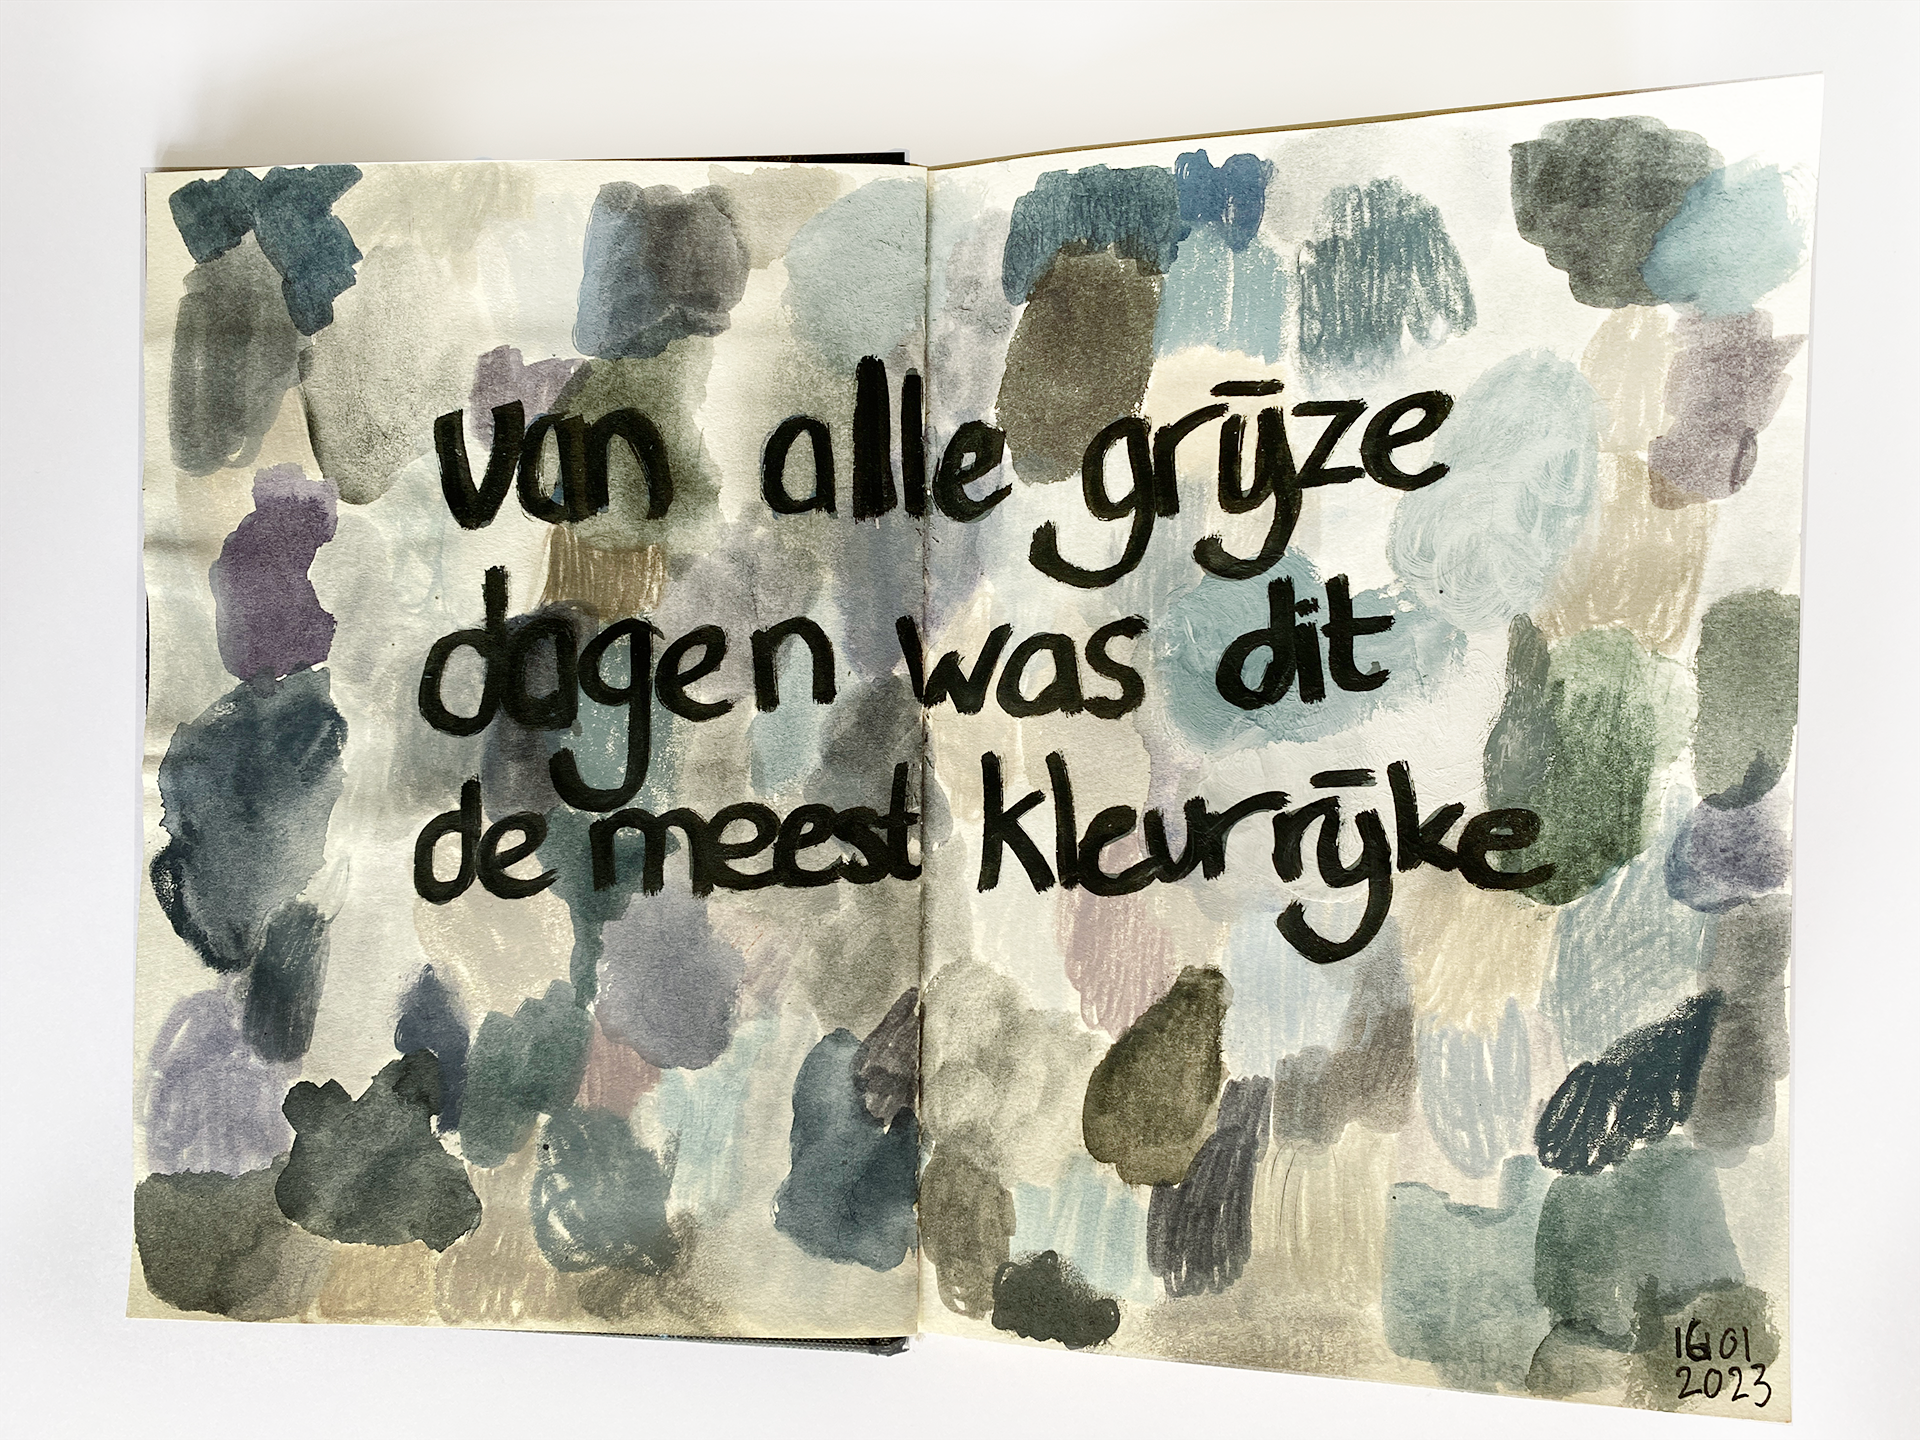 van alle grijze
dagen was dit
de meest kleurrijke
16 01
2023